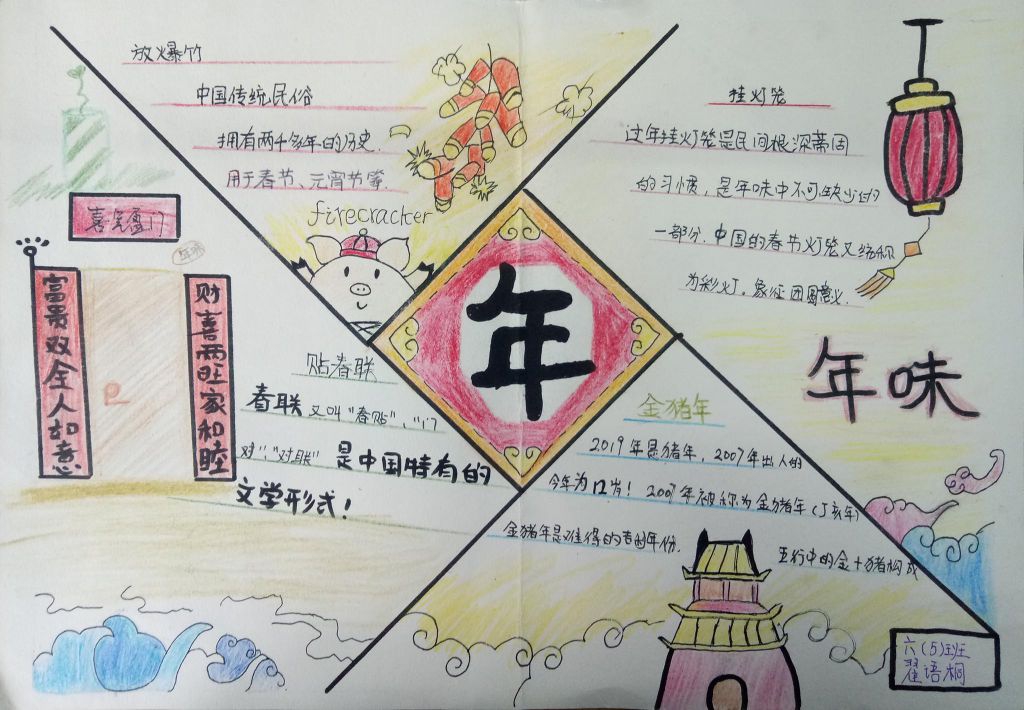 放爆竹
中国传统民俗
拥有两千多年的历史.
用于春节、元宵节等.
firecracker
挂灯笼
过年挂灯笼是民间根深蒂固
的习惯，是年味中不可缺少的
一部分.中国的春节灯笼又统称
为彩灯。象征团圆意义.
年味
喜笑盈门
年味
富贵双全人如意
财喜两旺家和睦
年
贴春联
春联又叫"春贴"、"门
对""对联"是中国特有的
文学形式！
金猪年
2019年是猪年，2007年出人的
今年为12岁！2007年被称为金猪年(丁亥年)
金猪年是难得的
年份.
五行中的金+猪构成
六(5)班
翟语桐